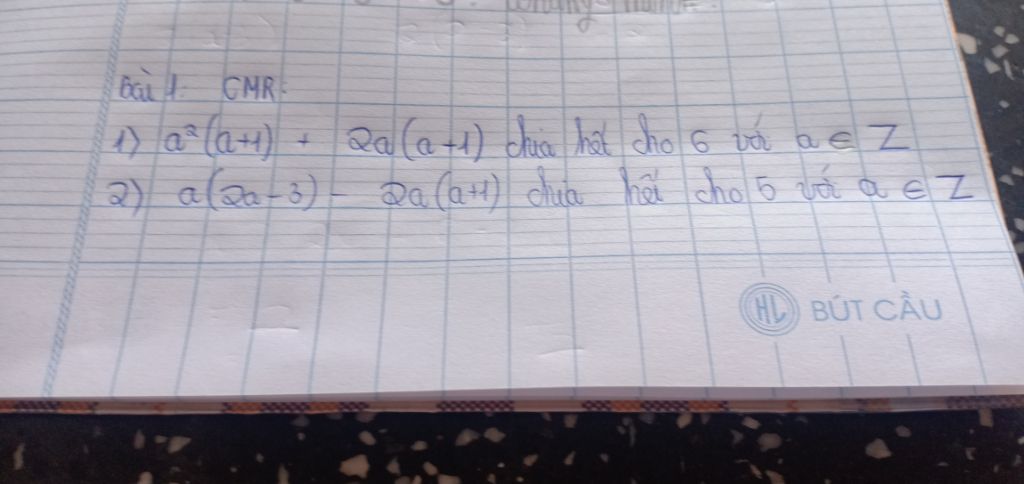 Bài 1: CMR:
1) a²(a+1) + 2a(a+1) chia hết cho 6 với a ∈ Z
2) a(2a-3) - 2a(a+1) chia hết cho 5 với a ∈ Z
HL BÚT CẦU